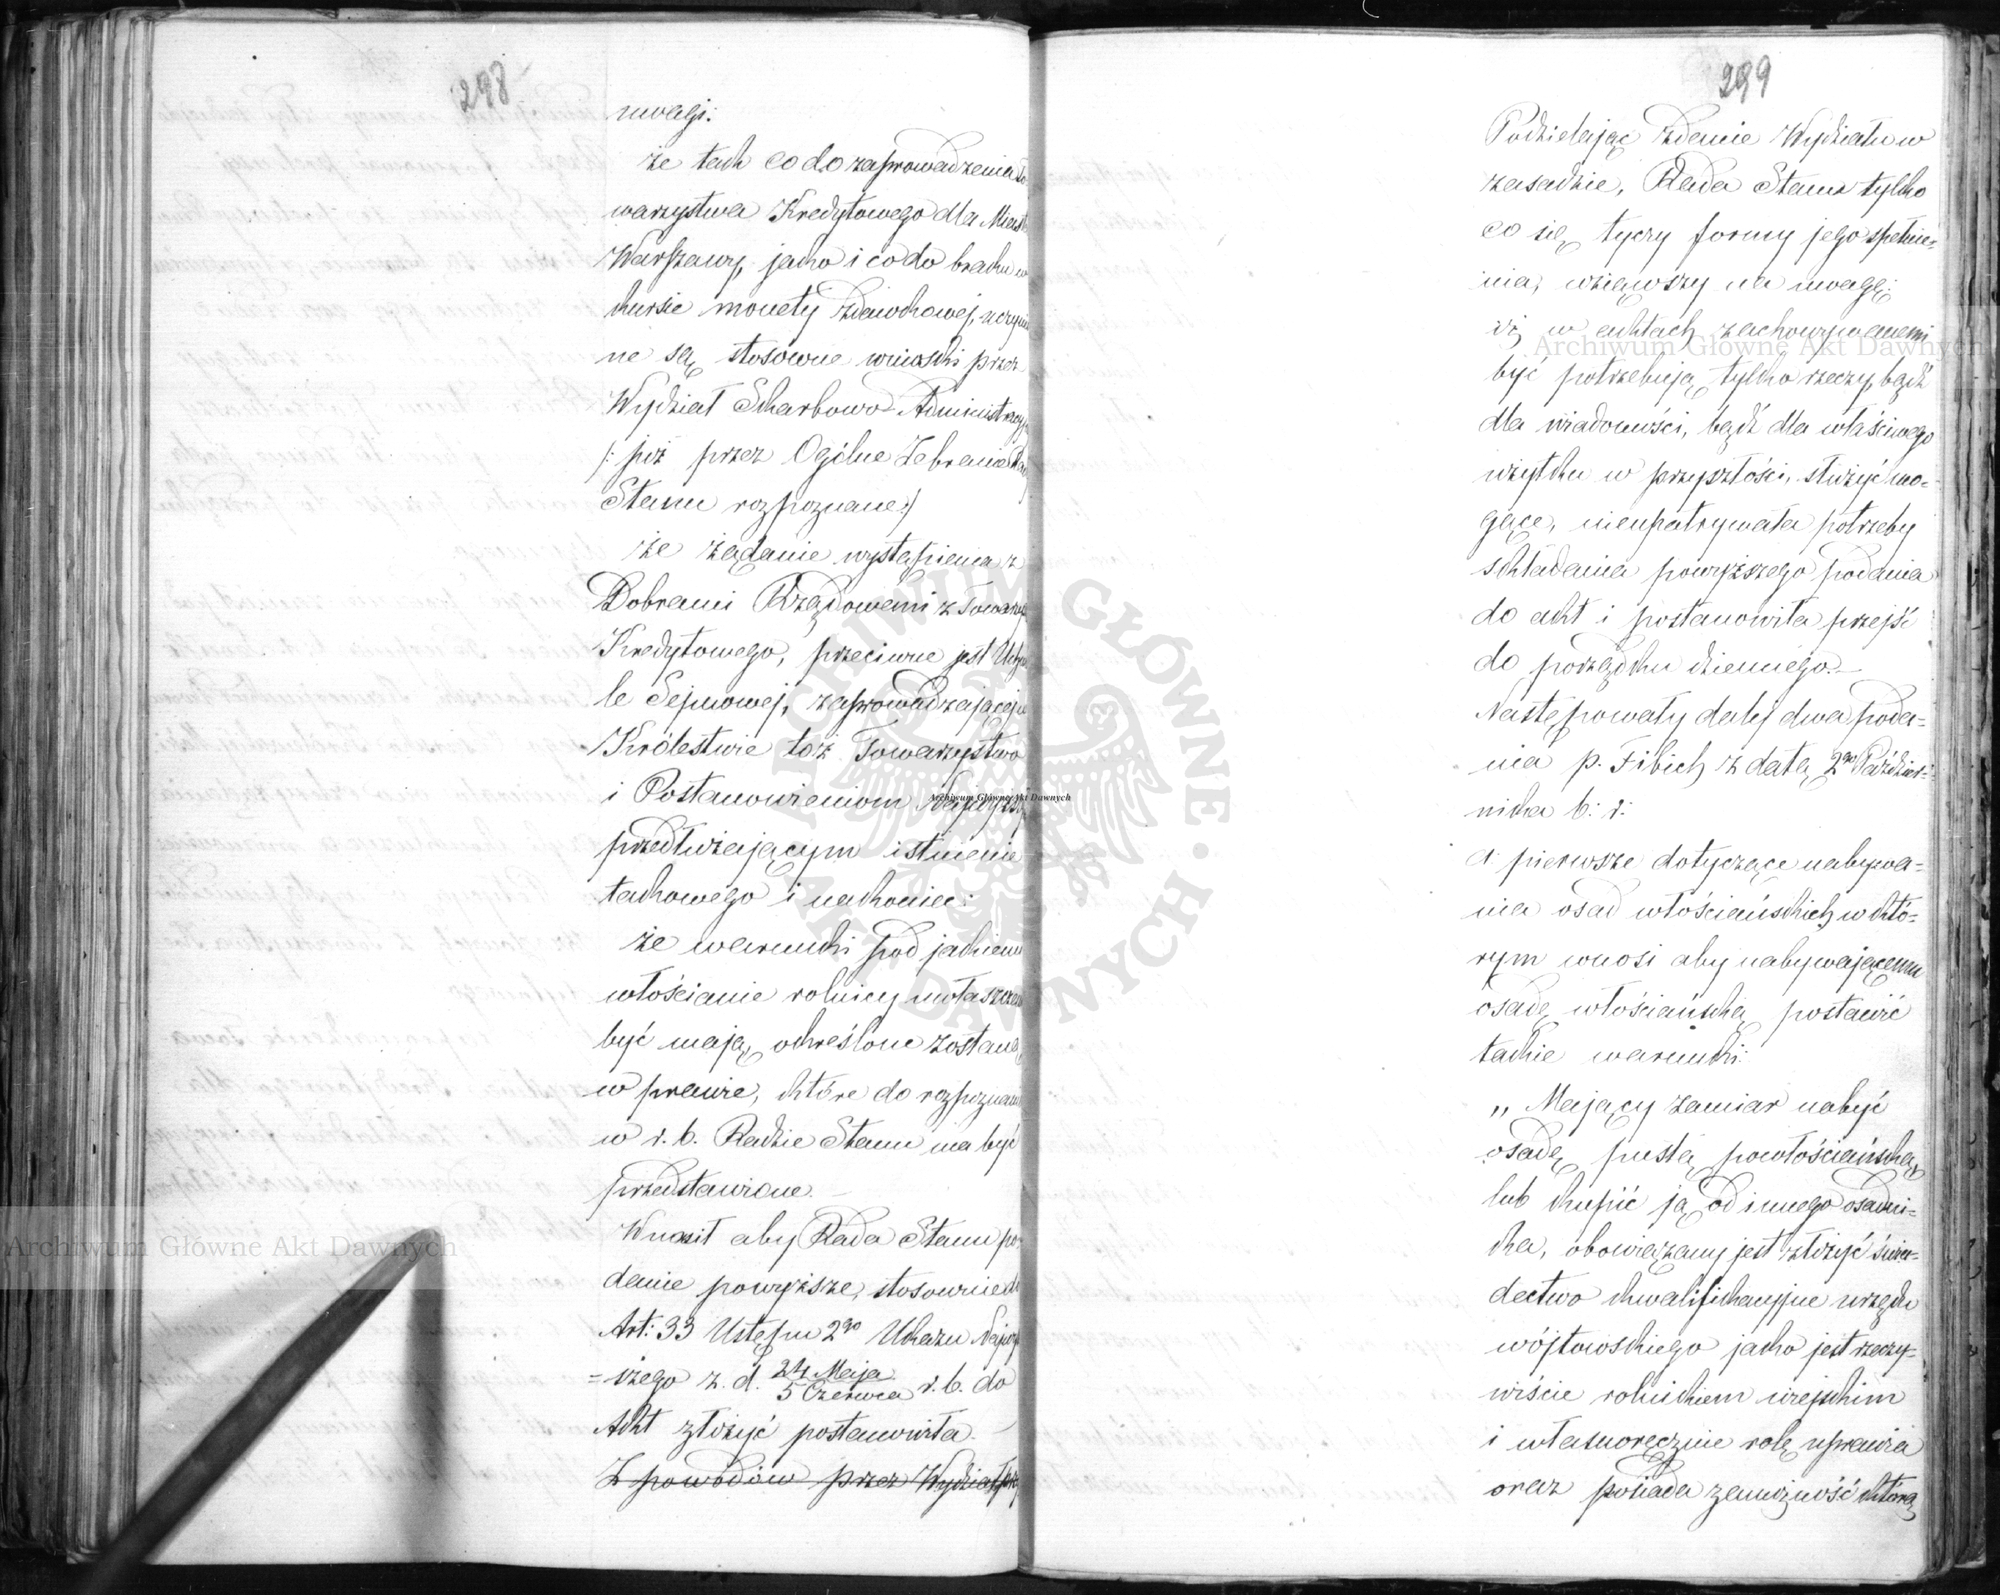 298
uwagi:
że tak co do zaprowadzenia To
warzystwa Kredytowego dla Miasta
Warszawy, jako i co do braku w
kursie monety zdawkowej, uczynio
ne są stosowne wnioski przez
Wydział Skarbowo-Administracyj
/: już przez Ogólne Zebranie Rady
Stanu rozpoznane:/
że żądanie wystąpienia z
Dobrami Rządowemi z Towarzys
Kredytowego, przeciwne jest Uchwa
le Sejmowej, zaprowadzającej w
Królestwie toż Towarzystwo
i Postanowieniom Najwyższ
przedłużającym istnienie
takowego i nakoniec:
że warunki pod jakiemi
włościanie rolnicy uwłaszczeni
być mają, określone zostaną
w prawie, które do rozpoznania
w r. b. Radzie Stanu ma być
przedstawione.
Wnosił aby Rada Stanu po-
danie powyższe, stosownie do
Art: 33 Ustępu 2go Ukazu Najwyż
=szego z. d. 24 Maja / 5 Czerwca r. b. do
Akt złożyć postanowiła.
Z powodów przez Wydział
299
Podzielając zdanie Wydziału w
zasadzie, Rada Stanu tylko
co się tyczy formy jego spełnie=
nia, wziąwszy na uwagę:
iż w aktach zachowywanemi
być potrzebują tylko rzeczy, bądź
dla wiadomości, bądź dla właściwego
użytku w przyszłości, służyć mo=
gące, nieupatrywała potrzeby
składania powyższego podania
do akt i postanowiła przejść
do porządku dziennego.—
Następowały dalej dwa poda=
nia p. Fibich z datą 2go Paździer=
nika b: r:
a: pierwsze dotyczące nabywa=
nia osad włościańskich, w któ=
rym wnosi aby nabywającemu
osadę włościańską postawić
takie warunki:
„Mający zamiar nabyć
osadę pustą powłościańską,
lub kupić ją od innego osadni=
ka, obowiązany jest złożyć świa=
dectwo kwalifikacyjne urzędu
wójtowskiego jako jest rzeczy=
wiście rolnikiem wiejskim
i własnoręcznie rolę uprawia
oraz posiada zamożność którą
Archiwum Główne Akt Dawnych
Archiwum Główne Akt Dawnych
Archiwum Główne Akt Dawnych
ARCHIWUM GŁÓWNE AKT DAWNYCH